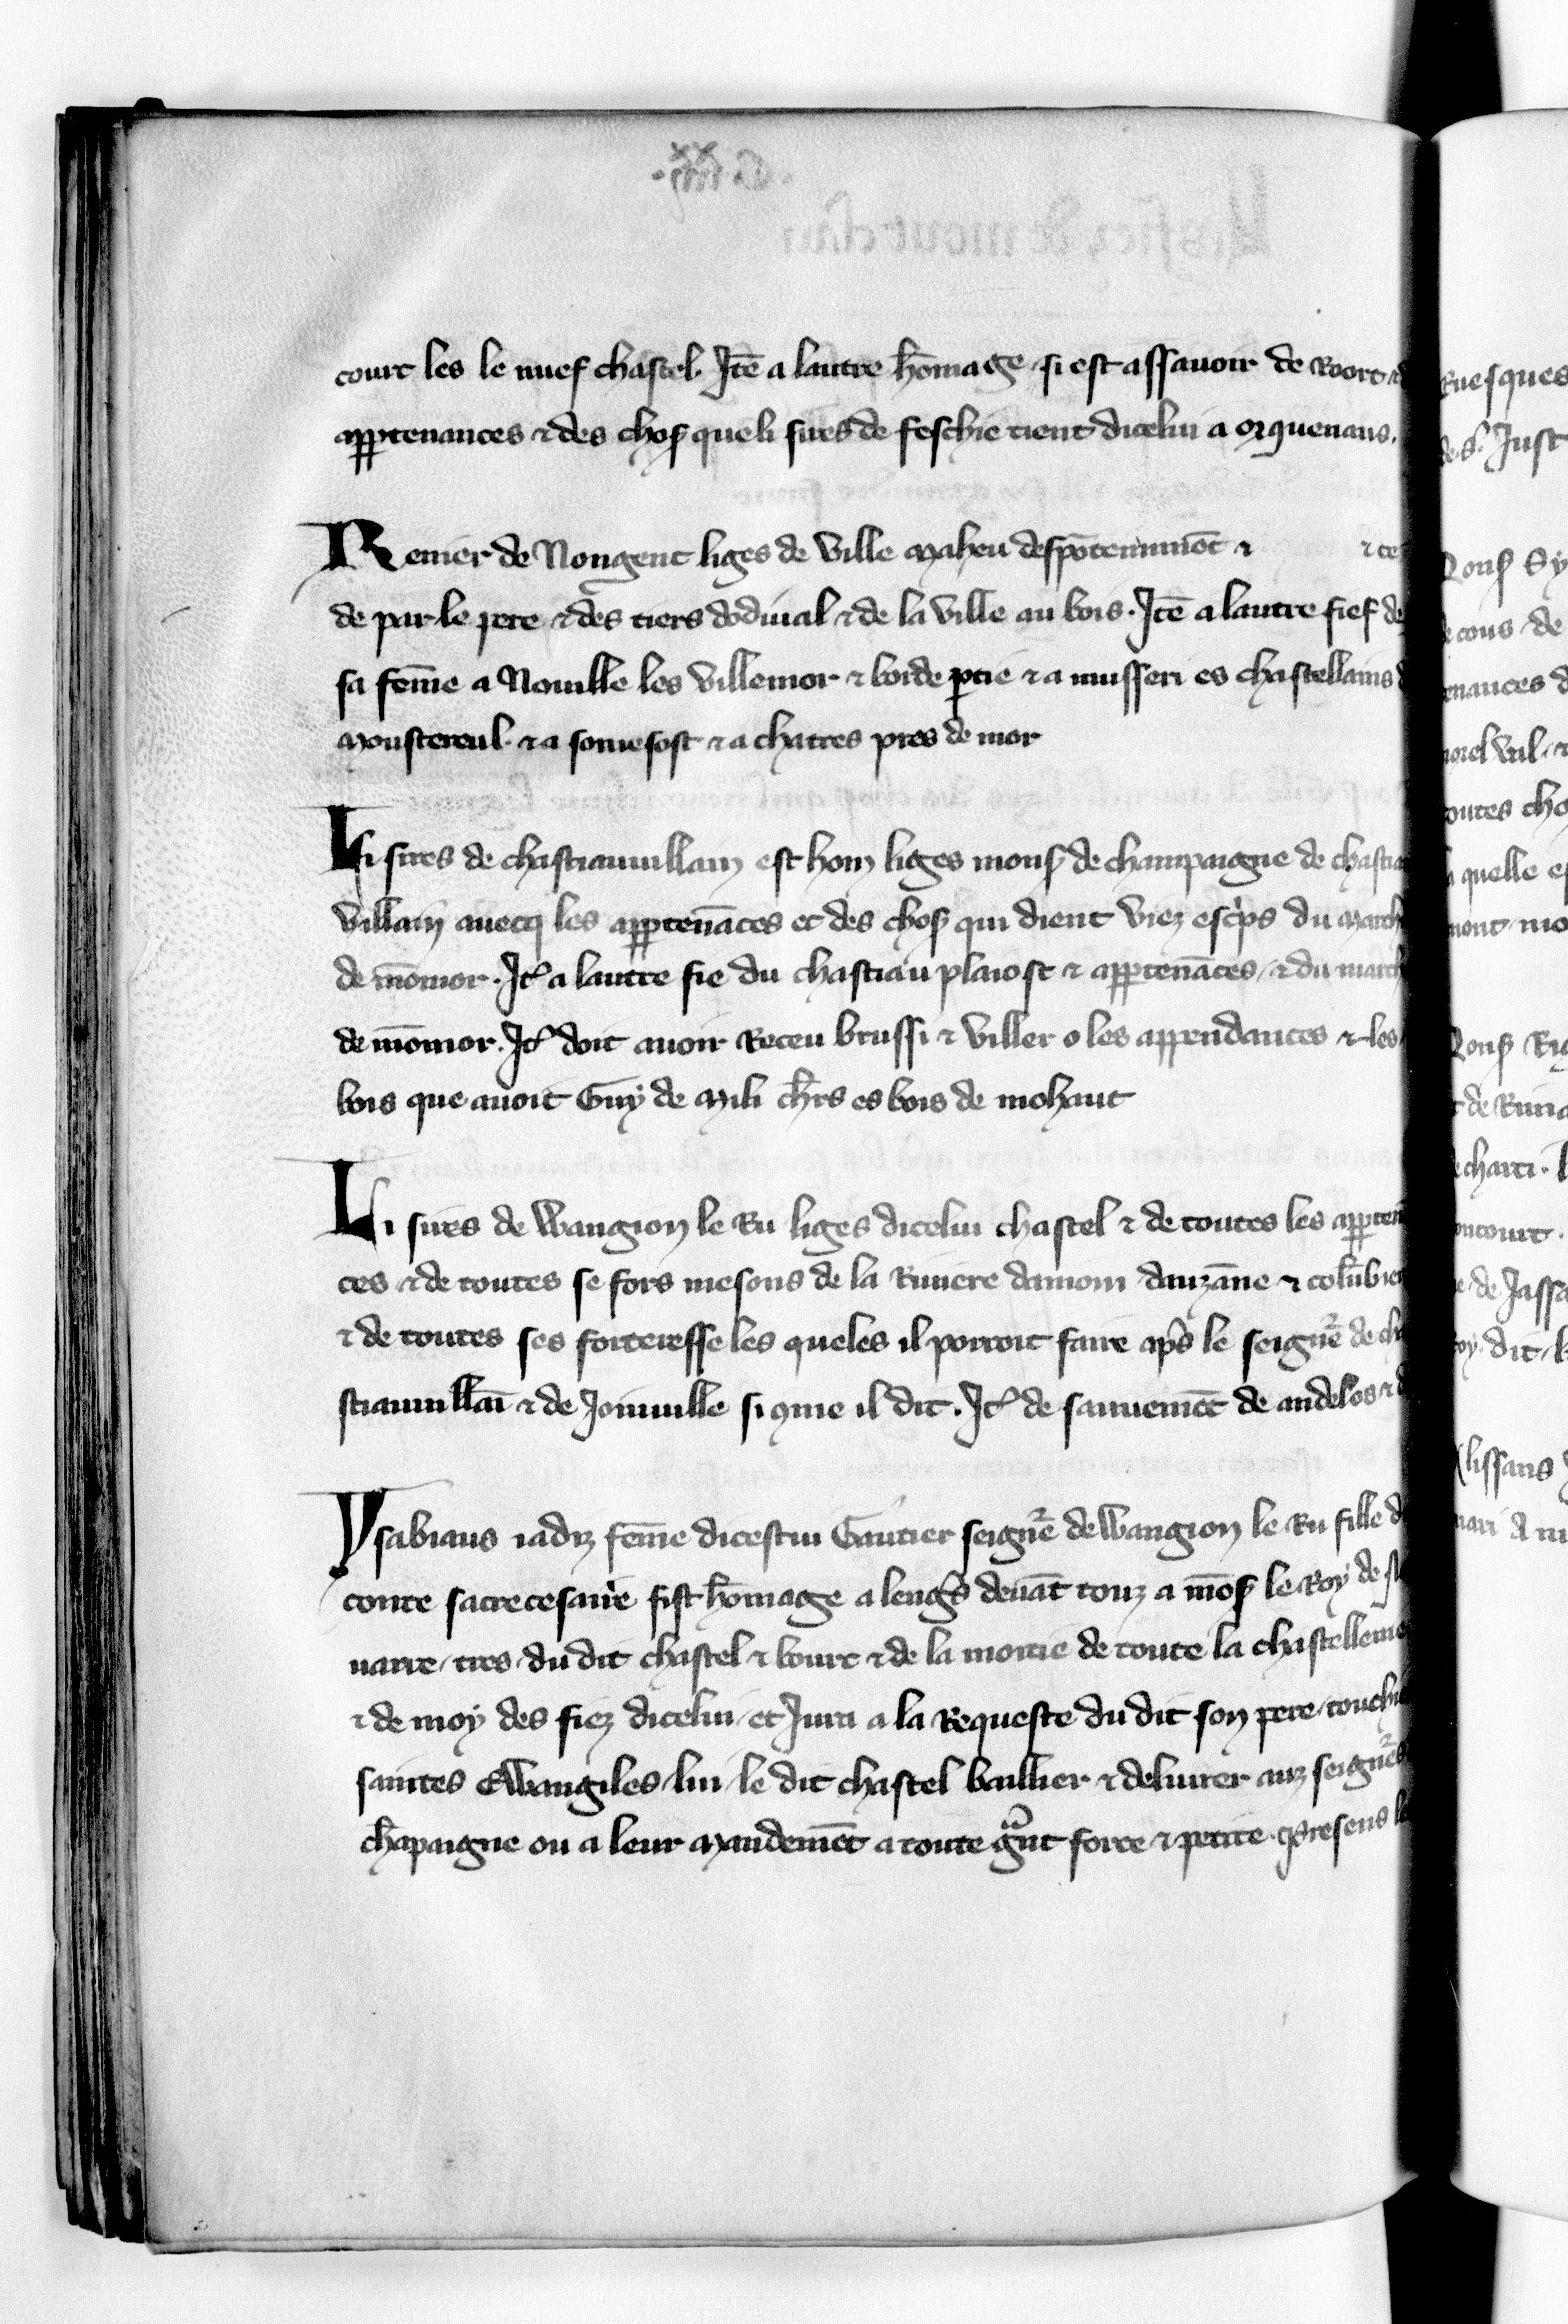 court les le nuef chastel. Itē a lautre hōmage si est assauoir de Roort
apptenances ⁊ des chos̾ que li sires de feschie tient dicelui a orquenaus.
Renier de Nongent liges de ville Maheu ⁊ ⁊
de par le pere ⁊ des tiers dodiual ⁊ de la ville au bois. Itē a lautre fief de
sa fēme a Nouille les villemor ⁊ borde ptie ⁊ a musseri es chastellains
Monstereul. ⁊ a somesost ⁊ a chatres pres de mor
Li sires de chastiauuillain est hom liges mons̾ de champaigne de chastia
villain auecq les apptenāces et des chos̾ qui dient viez esc'ps du march
de mōmor. It̾ a lautre fie du chastiau plaiost ⁊ apptenāces ⁊ du march
de mōmor. It̾ doit auoir Receu brussi ⁊ viller o les appendances ⁊ les
bois que auoit Guy de Mili ch̄rs es bois de mohaut
Li sires de Wangion le Ru liges dicelui chastel ⁊ de toutes les appten
ces ⁊ de toutes se fors mesons de la Riuiere damom dauzāne ⁊ colūbier
⁊ de toutes ses forteresse les queles il porroit faire ap̄s le seignē de cha
stiauuillaī ⁊ de Joinuille si qme il dit. It̾ de sauuemēt de andelos ⁊ d
Ysabiaus iadiz fēme dicestui Gautier seignē de Wangion le Ru fille d
conte sacrecesaire fist hōmage a leng̾s deuāt touz a mōs̾ le Roy de
uarre, tres, du dit chastel ⁊ bourt ⁊ de la moitie de toute la chastellenie
⁊ de moy des fiez dicelui, et Jura a la Requeste du dit son pere, touchi
saintes Ewangiles, lui le dit chastel baillier ⁊ deliurer auz seignēs
chāpaigne ou a leur Mandemēt a toute g̃nt force ⁊ petite. presens
Ruesques
de. s̾. Just
Mons̾ Sy
de tous de
tenances d
morel val. ⁊
toutes cho
la quelle es
mont mo
Mons̾ Rig
⁊ de Riuie
de charci.
ontourt.
de Jassa
roy, dit,
Alissans
mari A